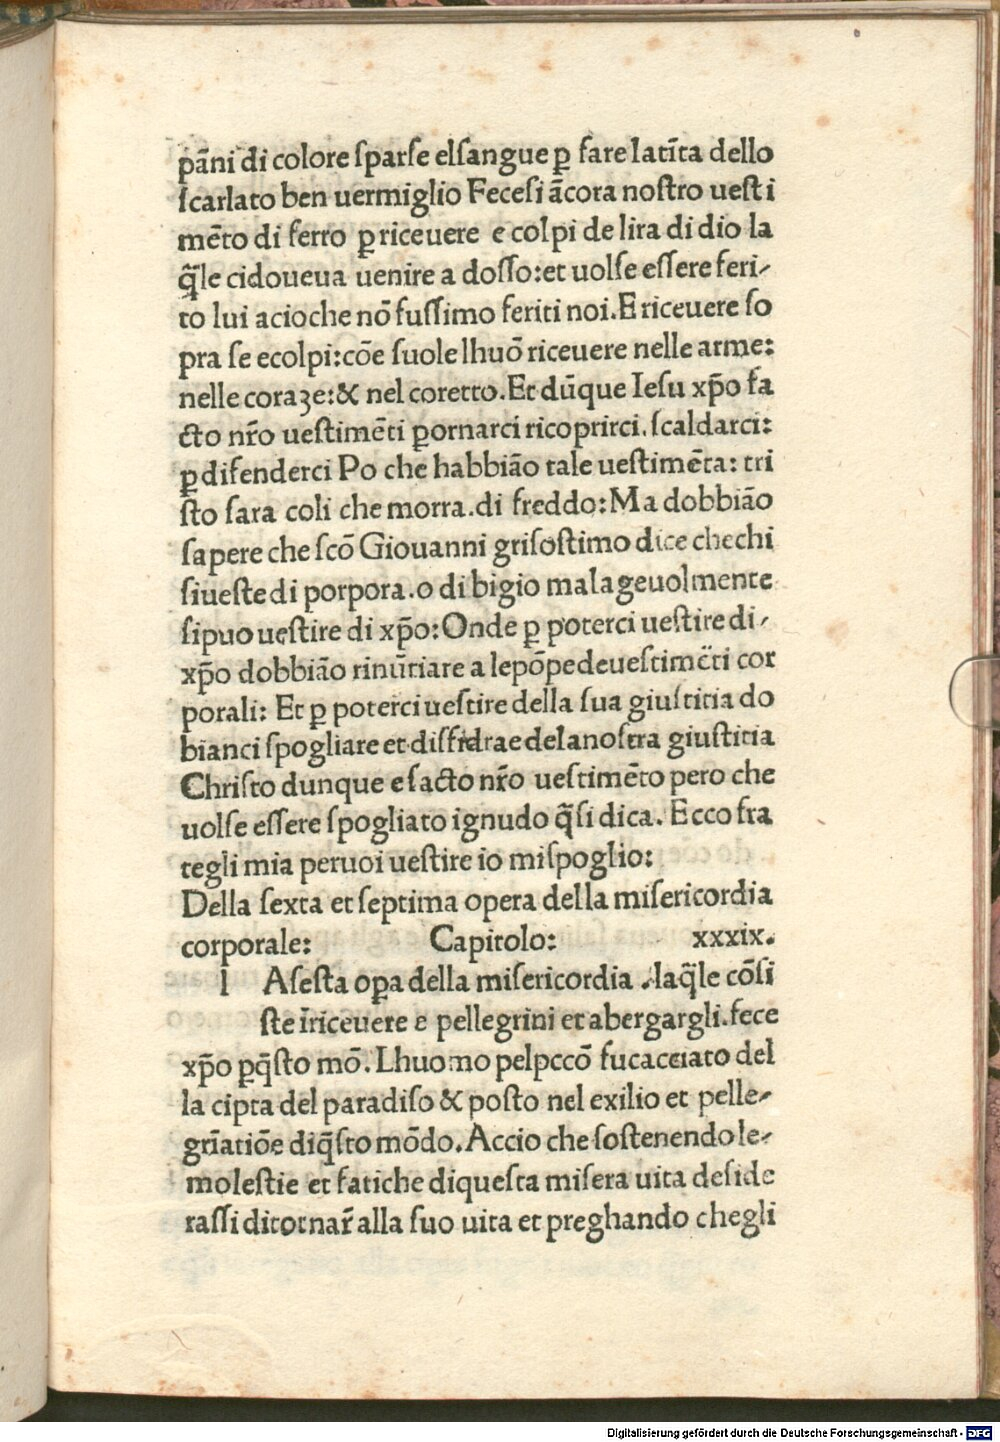 pāni di colore ſparſe elſangue ꝑ fare latīta dello
ſcarlato ben uermiglio Feceſi ācora noſtro ueſti
mēto di ferro ꝑriceuere e colpi de lira di dio la
q̄le cidoueua uenire a doſſo:et uolſe eſſere feri-
to lui acioche nō fuſſimo feriti noi.E riceuere ſo
pra ſe ecolpi:cōe ſuole lhuō riceuere nelle arme:
nelle coraʒe:& nel coretto.Et dūque Ieſu xp̄o fa
cto nr̄o ueſtimēti ꝑornarci ricoprirci.ſcaldarci:
ꝑdifenderci Po che habbiāo tale ueſtimēta: tri
ſto ſara coli che morra.di freddo:Ma dobbiāo
ſapere che ſcō Giouanni griſoſtimo dice chechi
ſiueſte di porpora.o di bigio malageuolmente
ſipuo ueſtire di xp̄o:Onde ꝑ poterci ueſtire di-
xp̄o dobbiāo rinūtiare a lepōpedeueſtimēti cor
porali: Et ꝑ poterci ueſtire della ſua giuſtitia do
bianci ſpogliare et diffidrae delanoſtra giuſtitia
Chriſto dunque e facto nr̄o ueſtimēto pero che
uolſe eſſere ſpogliato ignudo q̄ſi dica. Ecco fra
tegli mia peruoi ueſtire io miſpoglio:
Della ſexta et ſeptima opera della miſericordia
corporale: Capitolo: xxxix.
l Aſeſta oꝑa della miſericordia .laq̄le cōſi
ſte īriceuere e pellegrini et abergargli.fece
xp̄o ꝑq̄ſto mō.Lhuomo pelpccō fucacciato del
la cipta del paradiſo & poſto nel exilio et pelle-
grīatiōe diq̄ſto mōdo.Accio che ſoſtenendo le-
moleſtie et fatiche diqueſta miſera uita deſide
raſſi ditornar̄ alla ſuo uita et preghando chegli
Digitalisierung gefördert durch die Deutsche Forschungsgemeinschaft - DFG